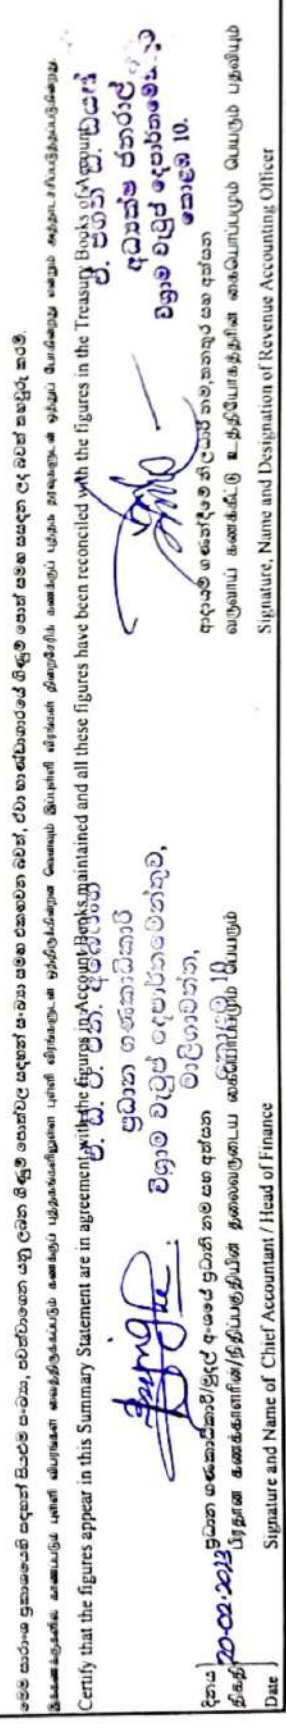 මෙම සාරාංශ ප්‍රකාශයෙහි සඳහන් සියළුම සංඛ්‍යා, පවත්වාගෙන යනු ලබන ගිණුම් පොත්වල සඳහන් සංඛ්‍යා සමඟ එකඟවන බවත්, ඒවා භාණ්ඩාගාරයේ ගිණුම් පොත් සමඟ සසඳන ලද බවත් සහතික කරමි.
Certify that the figures appear in this Summary Statement are in agreement with the figures in Account Books maintained and all these figures have been reconciled with the figures in the Treasury Books of Account
ප්‍රධාන ගණකාධිකාරී
විශ්‍රාම වැටුප් දෙපාර්තමේන්තුව,
මාලිගාවත්ත,
කොළඹ 10
අධ්‍යක්ෂ ජනරාල්
විශ්‍රාම වැටුප් දෙපාර්තමේන්තුව
කොළඹ 10.
දිනය ප්‍රධාන ගණකාධිකාරී/මුදල් අංශයේ ප්‍රධානී නම සහ අත්සන
திகதி 20-02-2013 பிரதான கணக்காளரின்/நிதிப்பகுதியின் தலைவருடைய கையொப்பமும் பெயரும்
Date Signature and Name of Chief Accountant / Head of Finance
ආදායම් ගණන්දීමේ නිලධාරී නම, තනතුර සහ අත්සන
வருவாய் கணக்கீட்டு உத்தியோகத்தரின் கையொப்பமும் பெயரும் பதவியும்
Signature, Name and Designation of Revenue Accounting Officer